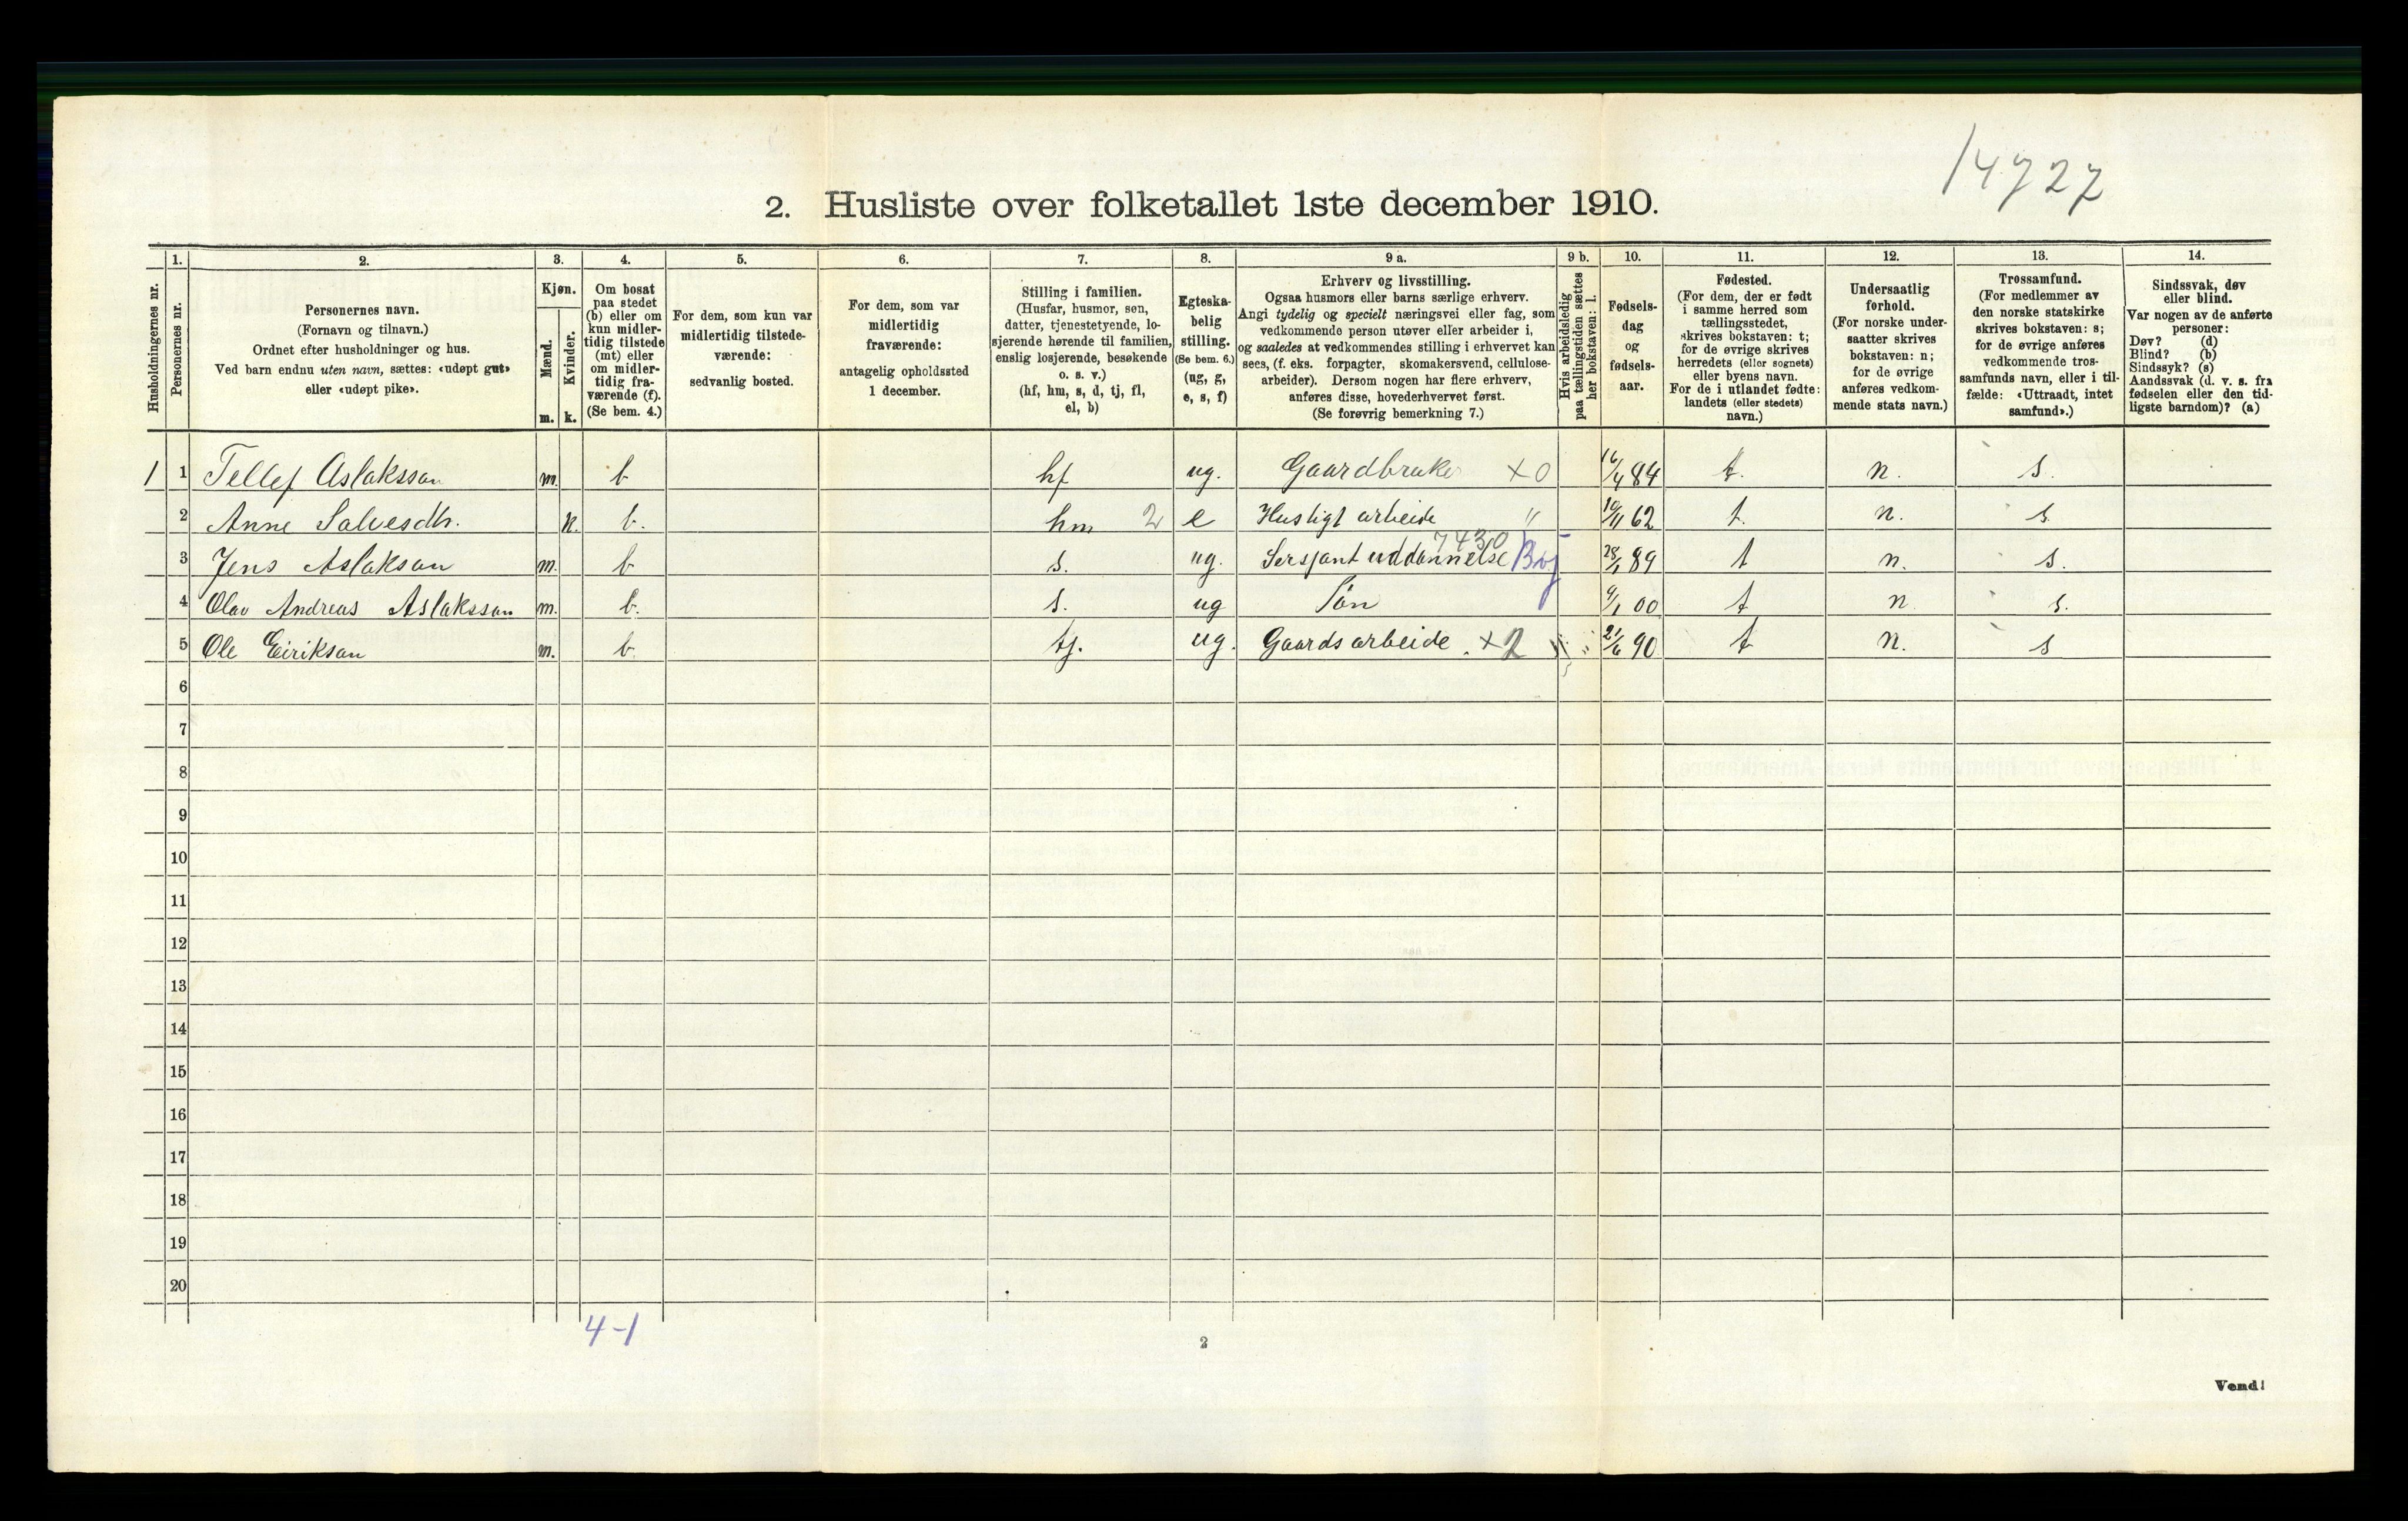 14727
2. Husliste over folketallet 1ste december 1910.
Husholdningernes nr.
1.
Personernes nr.
2.
Personernes navn.
(Fornavn og tilnavn.)
Ordnet efter husholdninger og hus.
Ved barn endnu uten navn, sættes: «udøpt gut»
eller «udøpt pike».
3.
Kjøn.
Mænd.
m.
Kvinder.
k.
4.
Om bosat
paa stedet
(b) eller om
kun midler-
tidig tilstede
(mt) eller
om midler-
tidig fra-
værende (f).
(Se bem. 4.)
5.
For dem, som kun var
midlertidig tilstede-
værende:
sedvanlig bosted.
6.
For dem, som var
midlertidig
fraværende:
antagelig opholdssted
1 december.
7.
Stilling i familien.
(Husfar, husmor, søn,
datter, tjenestetyende, lo-
sjerende hørende til familien,
enslig losjerende, besøkende
o. s. v.)
(hf, hm, s, d, tj, fl,
el, b)
8.
Egteska-
belig
stilling.
(Se bem. 6.)
(ug, g,
e, s, f)
9 a.
Erhverv og livsstilling.
Ogsaa husmors eller barns særlige erhverv.
Angi tydelig og specielt næringsvei eller fag, som
vedkommende person utøver eller arbeider i,
og saaledes at vedkommendes stilling i erhvervet kan
sees, (f. eks. forpagter, skomakersvend, cellulose-
arbeider). Dersom nogen har flere erhverv,
anføres disse, hovederhvervet først.
(Se forøvrig bemerkning 7.)
9 b.
Hvis arbeidsledig
paa tællingstiden sættes
her bokstaven: l.
10.
Fødsels-
dag
og
fødsels-
aar.
11.
Fødested.
(For dem, der er født
i samme herred som
tællingsstedet,
skrives bokstaven: t;
for de øvrige skrives
herredets (eller sognets)
eller byens navn.
For de i utlandet fødte:
landets (eller stedets)
navn.)
12.
Undersaatlig
forhold.
(For norske under-
saatter skrives
bokstaven: n;
for de øvrige
anføres vedkom-
mende stats navn.)
13.
Trossamfund.
(For medlemmer av
den norske statskirke
skrives bokstaven: s;
for de øvrige anføres
vedkommende tros-
samfunds navn, eller i til-
fælde: «Uttraadt, intet
samfund».)
14.
Sindssvak, døv
eller blind.
Var nogen av de anførte
personer:
Døv? (d)
Blind? (b)
Sindssyk? (s)
Aandssvak (d. v. s. fra
fødselen eller den tid-
ligste barndom)? (a)
1 1 Tellef Aslakssan m. b hf ug. Gaardbruker x0 16/4 84 t. n. s.
2 Anne Salvesdtr. k. b. hm 2 e Husligt arbeide " 10/11 62 t. n. s.
3 Jens Aslaksan m. b s. ug. Sersjant uddannelse 7430 28/1 89 t n. s.
4 Olav Andreas Aslakssan m. b. s. ug Søn 9/1 00 t n. s.
5 Ole Eiriksan m. b. tj. ug. Gaardsarbeide. x2 21/6 90 t n. s
6
7
8
9
10
11
12
13
14
15
16
17
18
19
20
4-1
2
Vend!